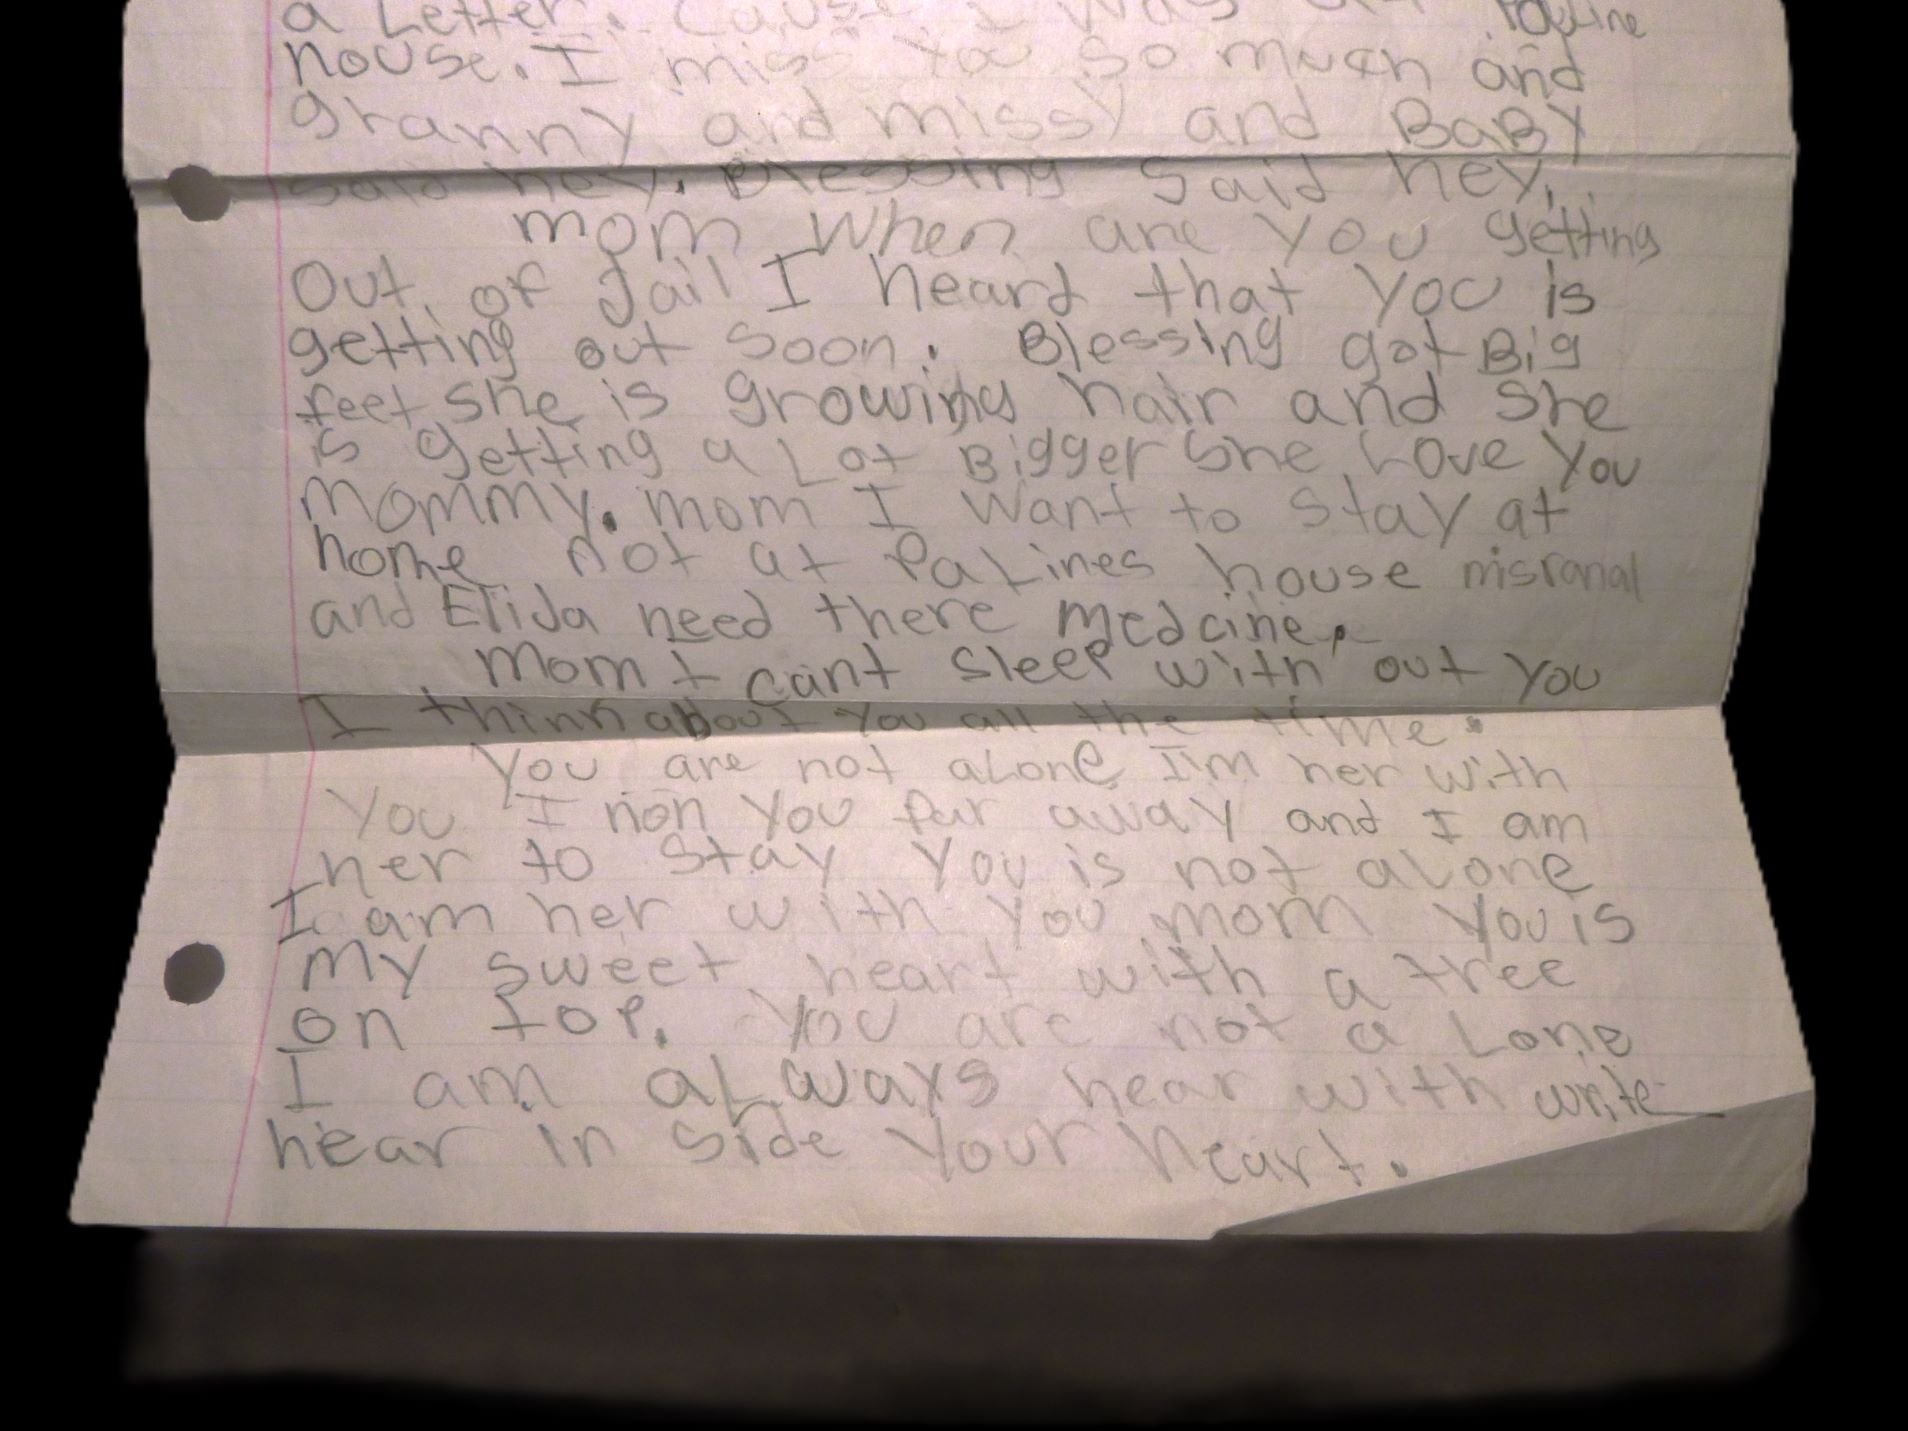 a Letter. Cause I was at Pauline
house. I miss you so much and
granny and missy and BaBy
said hey. Blessing said hey.
mom when are you getting
Out of Jail I heard that you is
getting out soon. Blessing got Big
feet she is growing hair and she
is getting a Lot Bigger She Love you
mommy. mom I want to stay at
home not at PaLines house
and Elida need there medcine.
Mom I cant sleep with out you
I think about you all the time.
You are not aLone I'm her with
you I non you far away and I am
her to stay you is not aLone
I am her with you mom you is
my sweet heart with a tree
on top. You are not a Lone
I am aLways hear with write
hear in side your heart.